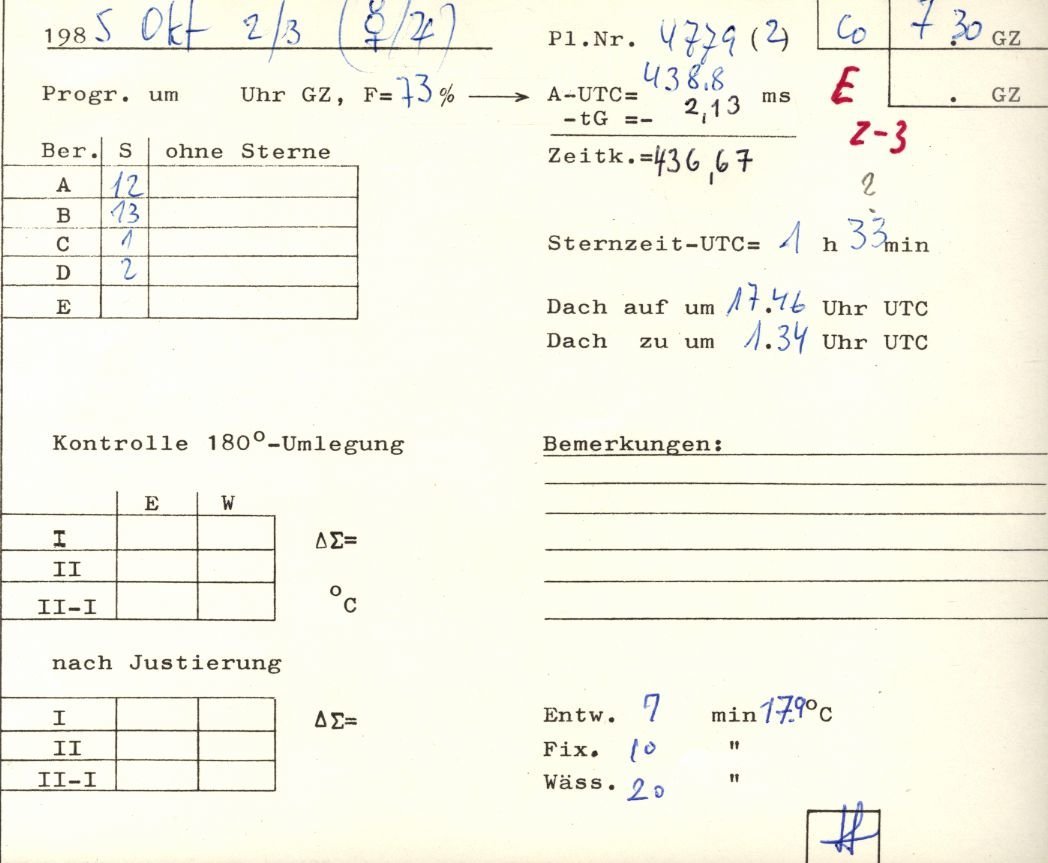 1985 Okt 2/3 (☿/♃)
Pl.Nr. 4779 (2)
Co 7.30 GZ
Progr. um Uhr GZ, F=73% ⟶ A-UTC= 438.8 ms
. GZ
E
-tG =- 2,13
z-3
Zeitk.=436,67
?
Ber. S ohne Sterne
A 12
B 13
C 1
D 2
E
Sternzeit-UTC= 1 h 33min
Dach auf um 17.46 Uhr UTC
Dach zu um 1.34 Uhr UTC
Kontrolle 180°-Umlegung
Bemerkungen:
E W
I ΔΣ=
II
II-I °C
nach Justierung
I ΔΣ=
II
II-I
Entw. 7 min 17.9°C
Fix. 10 "
Wäss. 20 "